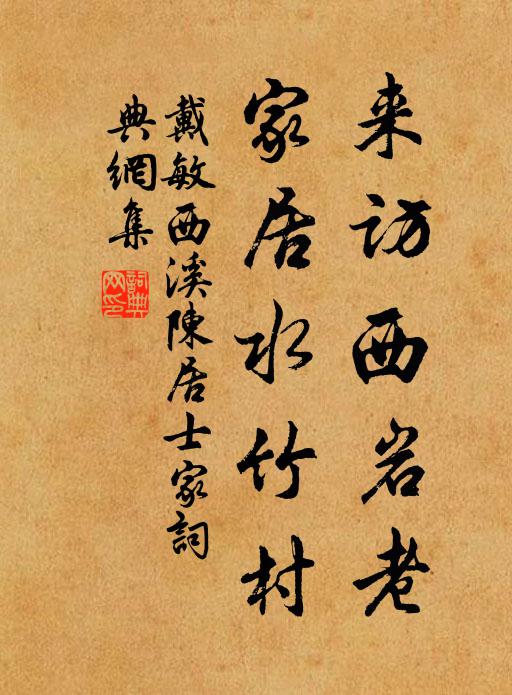 来访西岩老
家居水竹村
戴敏西溪陳居士家詞
典網集
詞典網印